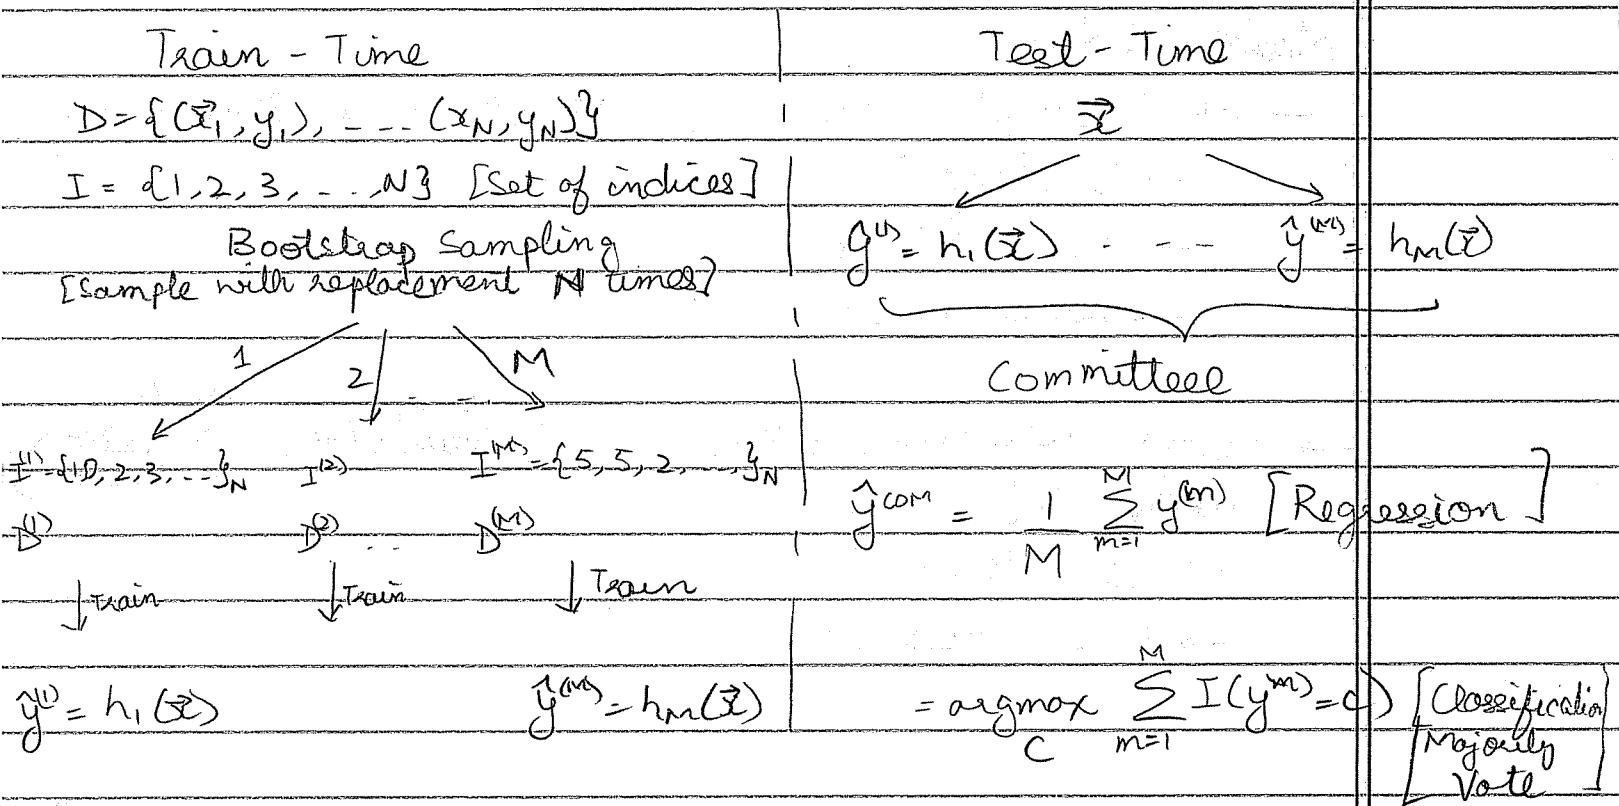 Train - Time
D = {(x⃗₁, y₁), - - - (x_N, y_N)}
I = {1, 2, 3, - . . , N} [Set of indices]
Bootstrap Sampling
[Sample with replacement N times]
1 2 - - - M
I⁽¹⁾ = {10, 2, 3, - - - }_N I⁽²⁾ I⁽ᴹ⁾ = {5, 5, 2, - . . , }_N
D⁽¹⁾ D⁽²⁾ . . . D⁽ᴹ⁾
↓ Train ↓ Train ↓ Train
ŷ⁽¹⁾ = h₁(x⃗) ŷ⁽ᴹ⁾ = h_M(x⃗)
Test - Time
x⃗
ŷ⁽¹⁾ = h₁(x⃗) . - - - ŷ⁽ᴹ⁾ = h_M(x⃗)
Committeee
ŷ^COM = 1/M Σ_{m=1}^{M} y⁽ᵐ⁾ [Regression]
= argmax_C Σ_{m=1}^{M} I(y⁽ᵐ⁾ = c) [Classification
Majority
Vote]